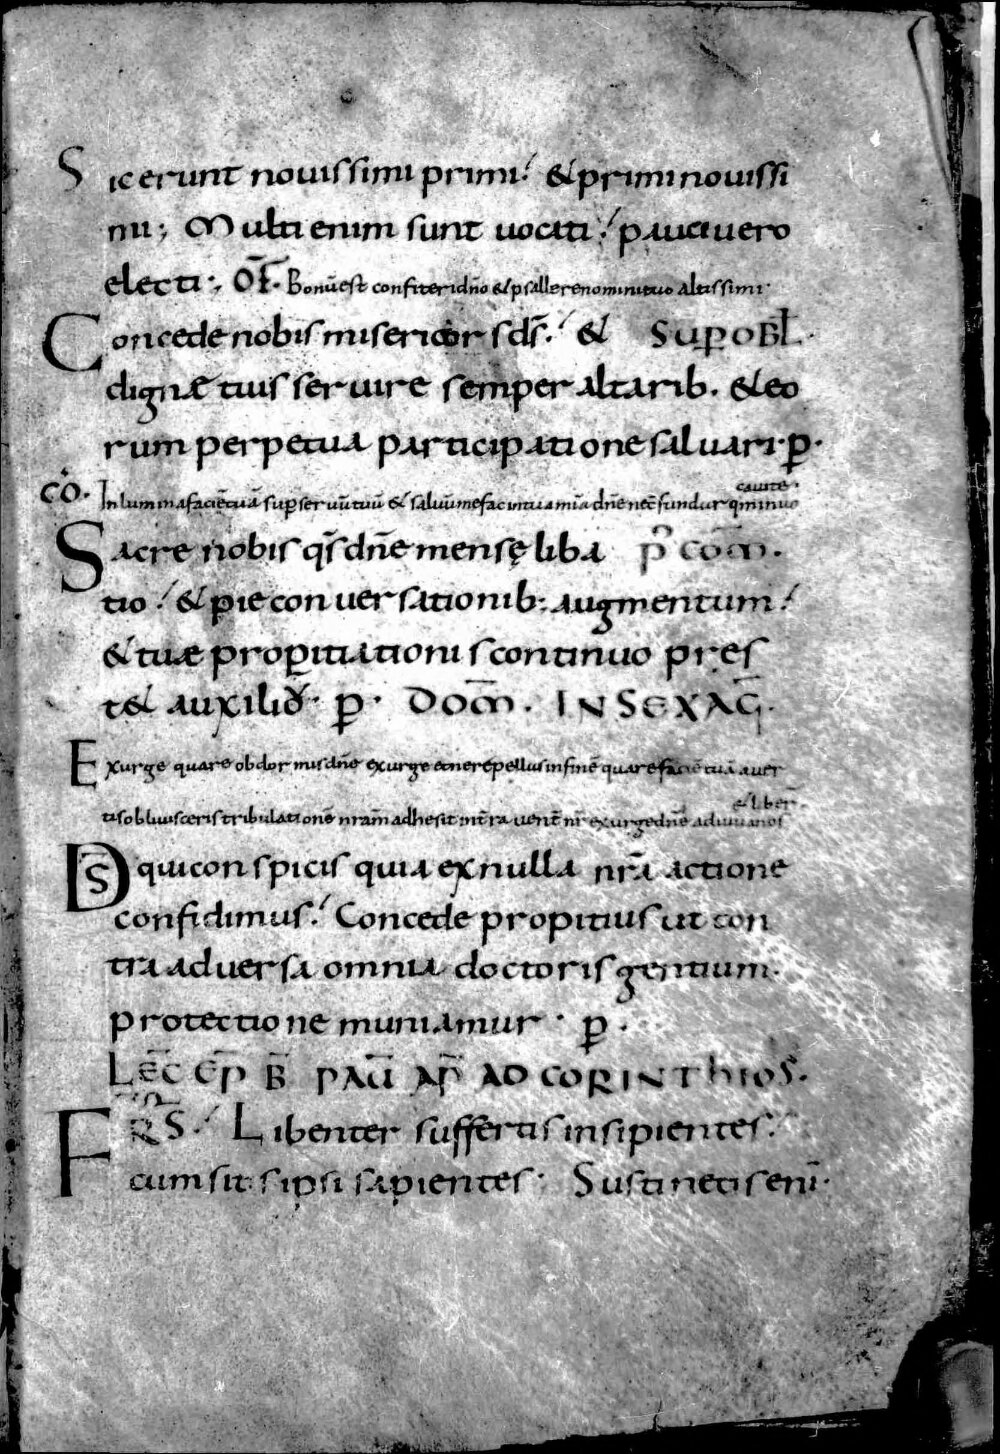 Sic erunt nouissimi primi. & primi nouissi
mi; Multi enim sunt uocati. pauci uero
electi:, OF̄. Bonū est confiteri dn̄o & psallere nomini tuo altissimi
Concede nobis misericors ds̄. & SUꝑ OBŁ.
dignæ tuis seruire semper altarib. & eo
rum perpetua participatione saluari. ꝑ.
cauite
CŌ. Inlumina faciē tuā suꝑ seruū tuū & saluū me fac in tua mīa dn̄e
Sacre nobis qs̄ dn̄e mensę liba P̄ COM̄.
tio. & pie conuersationib: augmentum.
& tuæ propitiationis continuo pres
t& auxiliū. ꝑ. DOM̄. IN SEXAḠ.
Exurge quare obdormis dn̄e exurge & ne repellas in finē quare faciē tuā auer
& liber
tis obliuisceris tribulationē nr̄am adhesit in t̄ra uent̄ nr̄ exurge dn̄e adiuua nos
DS qui conspicis quia ex nulla nr̄a actione
confidimus. Concede propitius ut con
tra aduersa omnia doctoris gentium.
protectione muniamur. ꝑ.
LEC̄ EP̄ B̄ PAŪ AP̄ AD CORINTHIOS.
FRS̄. Libenter suffertis insipientes.
cum sitis ipsi sapientes. Sustinetis enī.